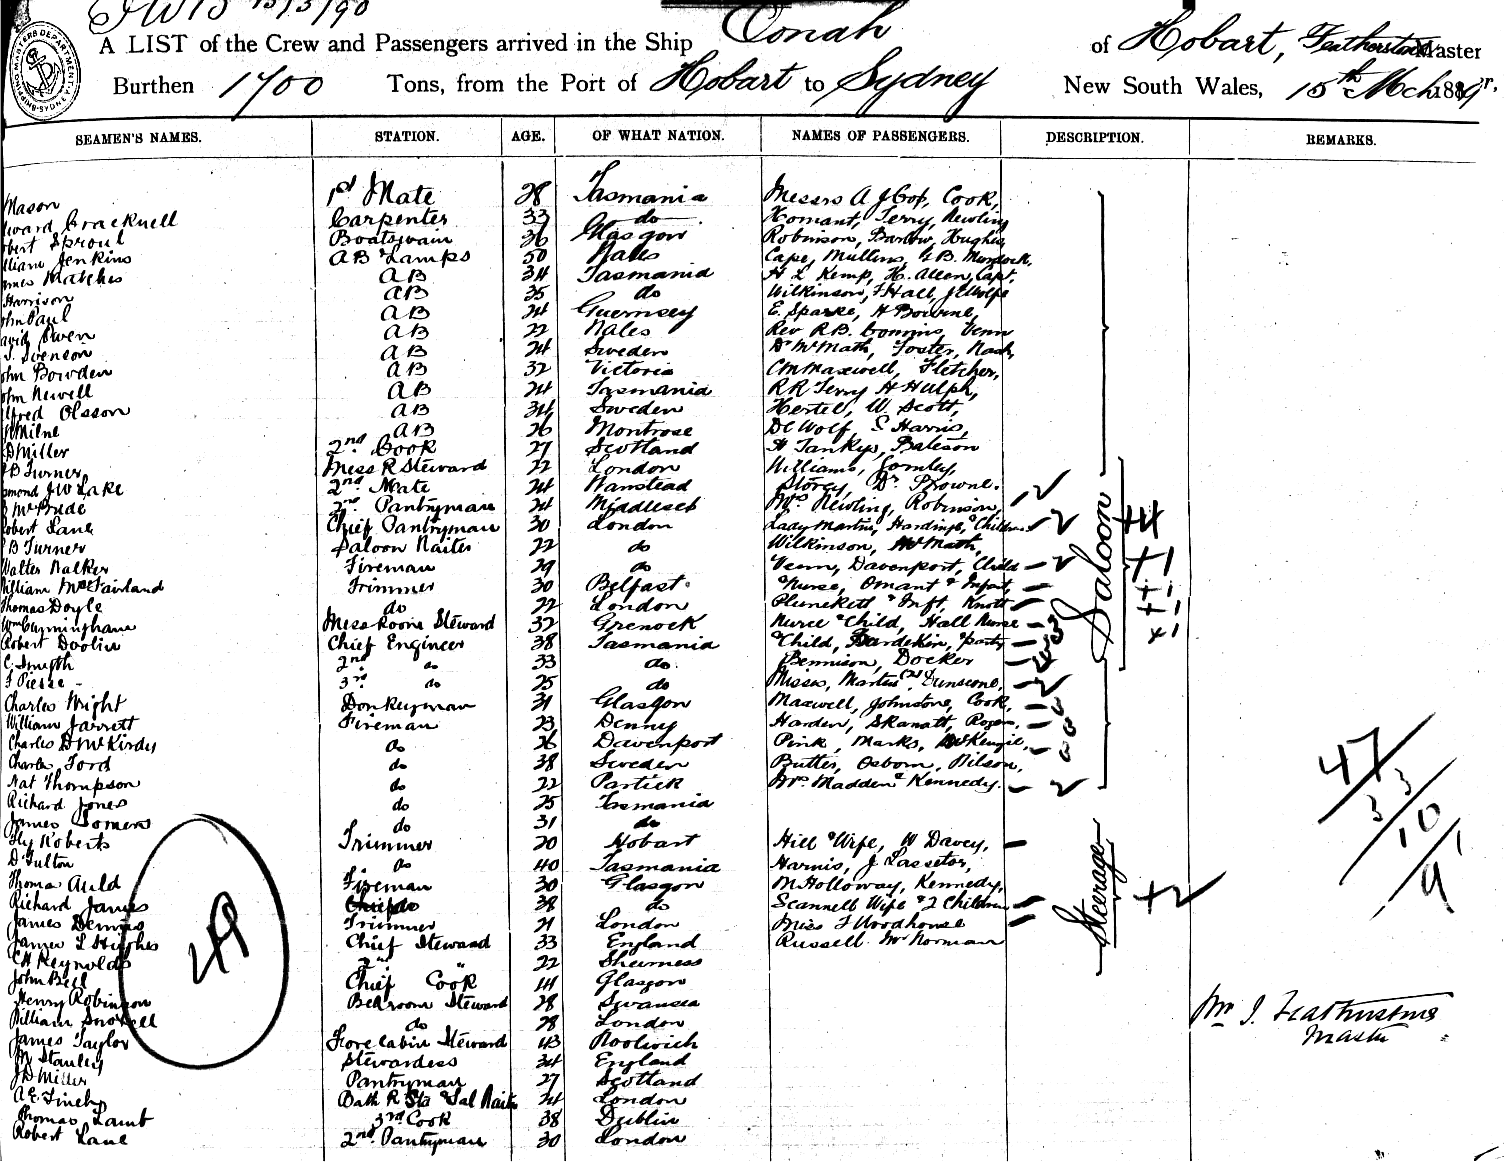 15/3/90
A LIST of the Crew and Passengers arrived in the Ship Oonah of Hobart, Featherstone Master
Burthen 1700 Tons, from the Port of Hobart to Sydney New South Wales, 15th Mch 1889
SEAMEN'S NAMES. STATION. AGE. OF WHAT NATION. NAMES OF PASSENGERS. DESCRIPTION. REMARKS.
Mason 1st Mate 28 Tasmania Messrs A J Cook,
Cracknell Carpenter 33 do Homant, Terry, Newling
Sproul Boatswain 36 Glasgow Robinson, Barlow, Hughes,
Jenkins AB & Lamps 50 Wales Cape, Mullins, G B. Murdock,
Matches AB 34 Tasmania H L Kemp, H. Allen, Capt.
Harrison AB 35 do Wilkinson, F Hall, J E Wolfe
John Paul AB 24 Guernsey E. Sparke, H Bourne,
David Owen AB 22 Wales Rev R.B. Venn
Svenson AB 24 Sweden Dr McMath, Foster, Nash,
John Bowden AB 32 Victoria C M Maxwell, Fletcher,
John Newell AB 24 Tasmania R R Terry H Hulph,
Alfred Olsson AB 34 Sweden Hertel, W. Scott,
Milne AB 26 Montrose De Wolf, S Harris,
D Miller 2nd Cook 27 Scotland H Tankys, Bateson
B Turner Mess R Steward 22 London Williams, Gomley,
J W Lake 2nd Mate 24 Wanstead Storey, Dr. Browne.
McBride 2nd Pantryman 24 Middlesex Mrs Newling, Robinson,
Robert Lane Chief Pantryman 30 London Lady Martin, Hardinge, & Children
B Turner Saloon Waiter 22 do Wilkinson, McMath,
Walter Walker Fireman 29 do Venn, Davenport, Child
William McFairland Trimmer 30 Belfast Nurse, Omant & Infant,
Thomas Doyle do 22 London Plunkett & Inft, Knott
Wm Cunningham Messroom Steward 32 Grenock Nurse & Child, Hall Nurse
Robert Doolin Chief Engineer 38 Tasmania & Child, party
C. Smyth 2nd do 33 do. Bennison, Docker
F Piesse 3rd do 25 do Misses, Martin (2) Dunscone,
Charles Wright Donkeyman 31 Glasgow Maxwell, Johnstone, Cook,
William Jarrett Fireman 23 Denny Harden, Skanatt, Rogers.
Charles D McKirdy do 26 Davenport Pink, Marks, McKenzie,
Charles Ford do 38 Sweden Butter, Osborn, Wilson,
Nat Thompson do 22 Partick Mr. Madden & Kennedy.
Richard Jones do 25 Tasmania
James Somers do 31 do
Hy Roberts Trimmer 20 Hobart Hill & Wife, W Davey,
D Fulton do 40 Tasmania Harris, J Lassetor,
Thomas Auld Fireman 30 Glasgow M Holloway, Kennedy,
Richard James 38 do Scannell Wife & 2 Children
James Dennis Trimmer 21 London Miss F Woodhouse
James L Hughes Chief Steward 33 England Russell Mr Norman
C H Reynolds 2nd " 22 Sheerness
John Bell Chief Cook 44 Glasgow
Henry Robinson Bedroom Steward 28 Swansea
William do 28 London
James Taylor Forecabin Steward 43 Woolwich
M Stanley Stewardess 34 England
J D Miller Pantryman 27 Scotland
A E Finch Bath R Sta & Sal Waiter 24 London
Thomas Lamb 3rd Cook 38 Dublin
Robert Lane 2nd Pantryman 30 London
Saloon
Steerage
+2
49
47
33
10
91
Wm J. Featherstone
Master